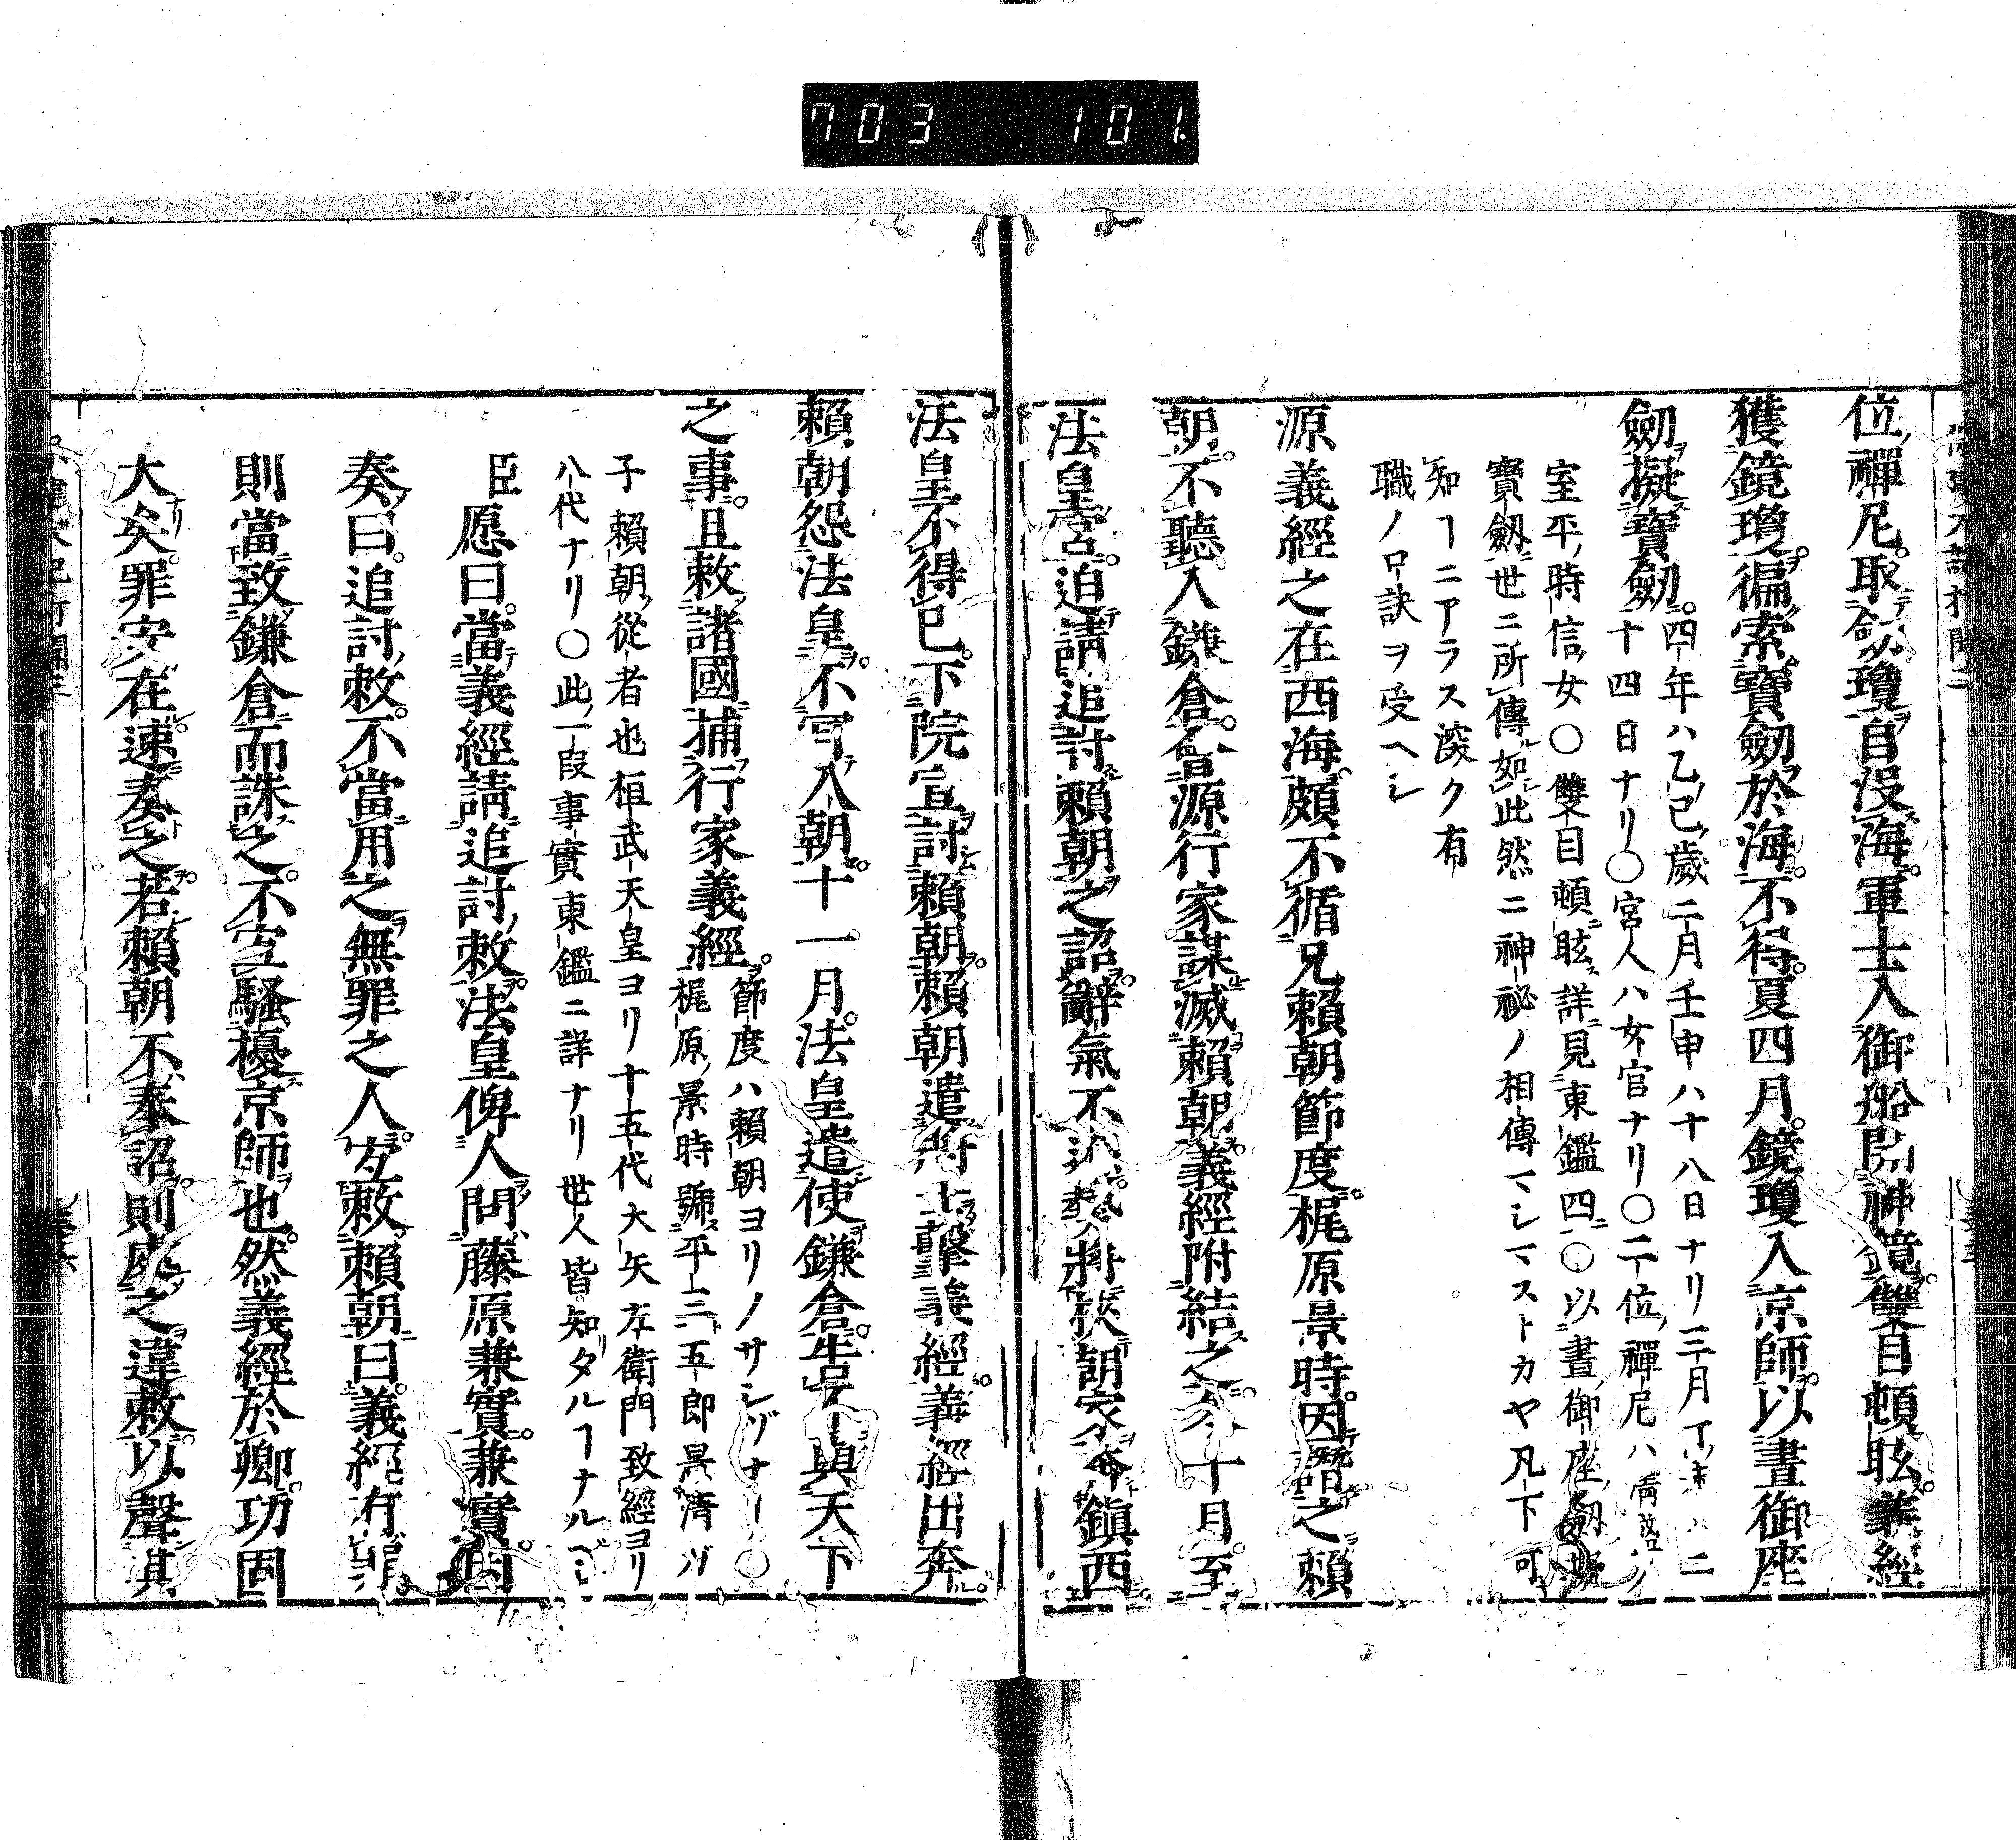 703 101.
位禪尼取劔瓊自没海軍士入御船開神鏡雙目頓眩義經
獲鏡瓊徧索寶劔於海不得夏四月鏡瓊入京師以晝御座
劔擬寶劔四年ハ乙巳歲二月壬申ハ十八日ナリ三月丁ハ二
十四日ナリ〇宮人ハ女官ナリ〇二位禪尼ハ淸盛ノ
室平時信女〇雙目頓眩詳見東鑑四〇以晝御座劔擬
寶劔世ニ所傳如此然ニ神祕ノ相傳マシマストカヤ凡下可
知ヿニアラス深ク有
職ノ口訣ヲ受ヘシ
源義經之在西海頗不循兄賴朝節度梶原景時因譖之賴
朝不聽入鎌倉會源行家謀滅賴朝義經附結之冬十月至
法皇宮迫請追討賴朝之詔辭氣不將挾朝家奔鎭西
法皇不得已下院宣討賴朝賴朝遣將士擊義經義經出奔
賴朝怨法皇不肯入朝十一月法皇遣使鎌倉告與天下
之事且敕諸國捕行家義經節度ハ賴朝ヨリノサシヅナリ〇
梶原景時號平三五郎景淸ガ
子賴朝從者也桓武天皇ヨリ十五代大矢左衛門致經ヨリ
八代ナリ〇此一段事實東鑑ニ詳ナリ世人皆知タルヿナルヘシ
臣愿曰當義經請追討敕法皇俾人問藤原兼實兼實因
奏曰追討敕不當用之無罪之人宜敕賴朝曰義經有罪
則當致鎌倉而誅之不宜騷擾京師也然義經於卿功固
大矣罪安在速奏之若賴朝不奉詔則座之違敕以聲其